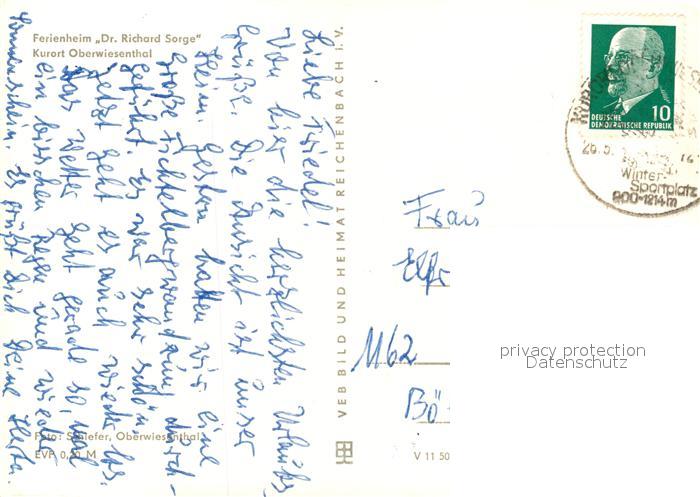 Ferienheim „Dr. Richard Sorge"
Kurort Oberwiesenthal
Liebe Friedel!
Von hier die herzlichsten Urlaubs
Grüße. Die Ansicht ist unser
Heim. Gestern hatten wir eine
große Fichtelbergwanderung durch-
geführt. Es war sehr schön.
Jetzt geht es auch wieder
Das Wetter geht gerade so, mal
ein bisschen Regen und wieder
Sonnenschein. Es grüßt Dich Deine Herta.
Foto: Schiefer, Oberwiesenthal
EVP 0,20 M
VEB BILD UND HEIMAT REICHENBACH i. V.
V 11 50
10
DEUTSCHE
DEMOKRATISCHE REPUBLIK
KURORT
26.5.
Winter-
Sportplatz
900-1214m
Frau
Elfr
1162
Bö
privacy protection
Datenschutz